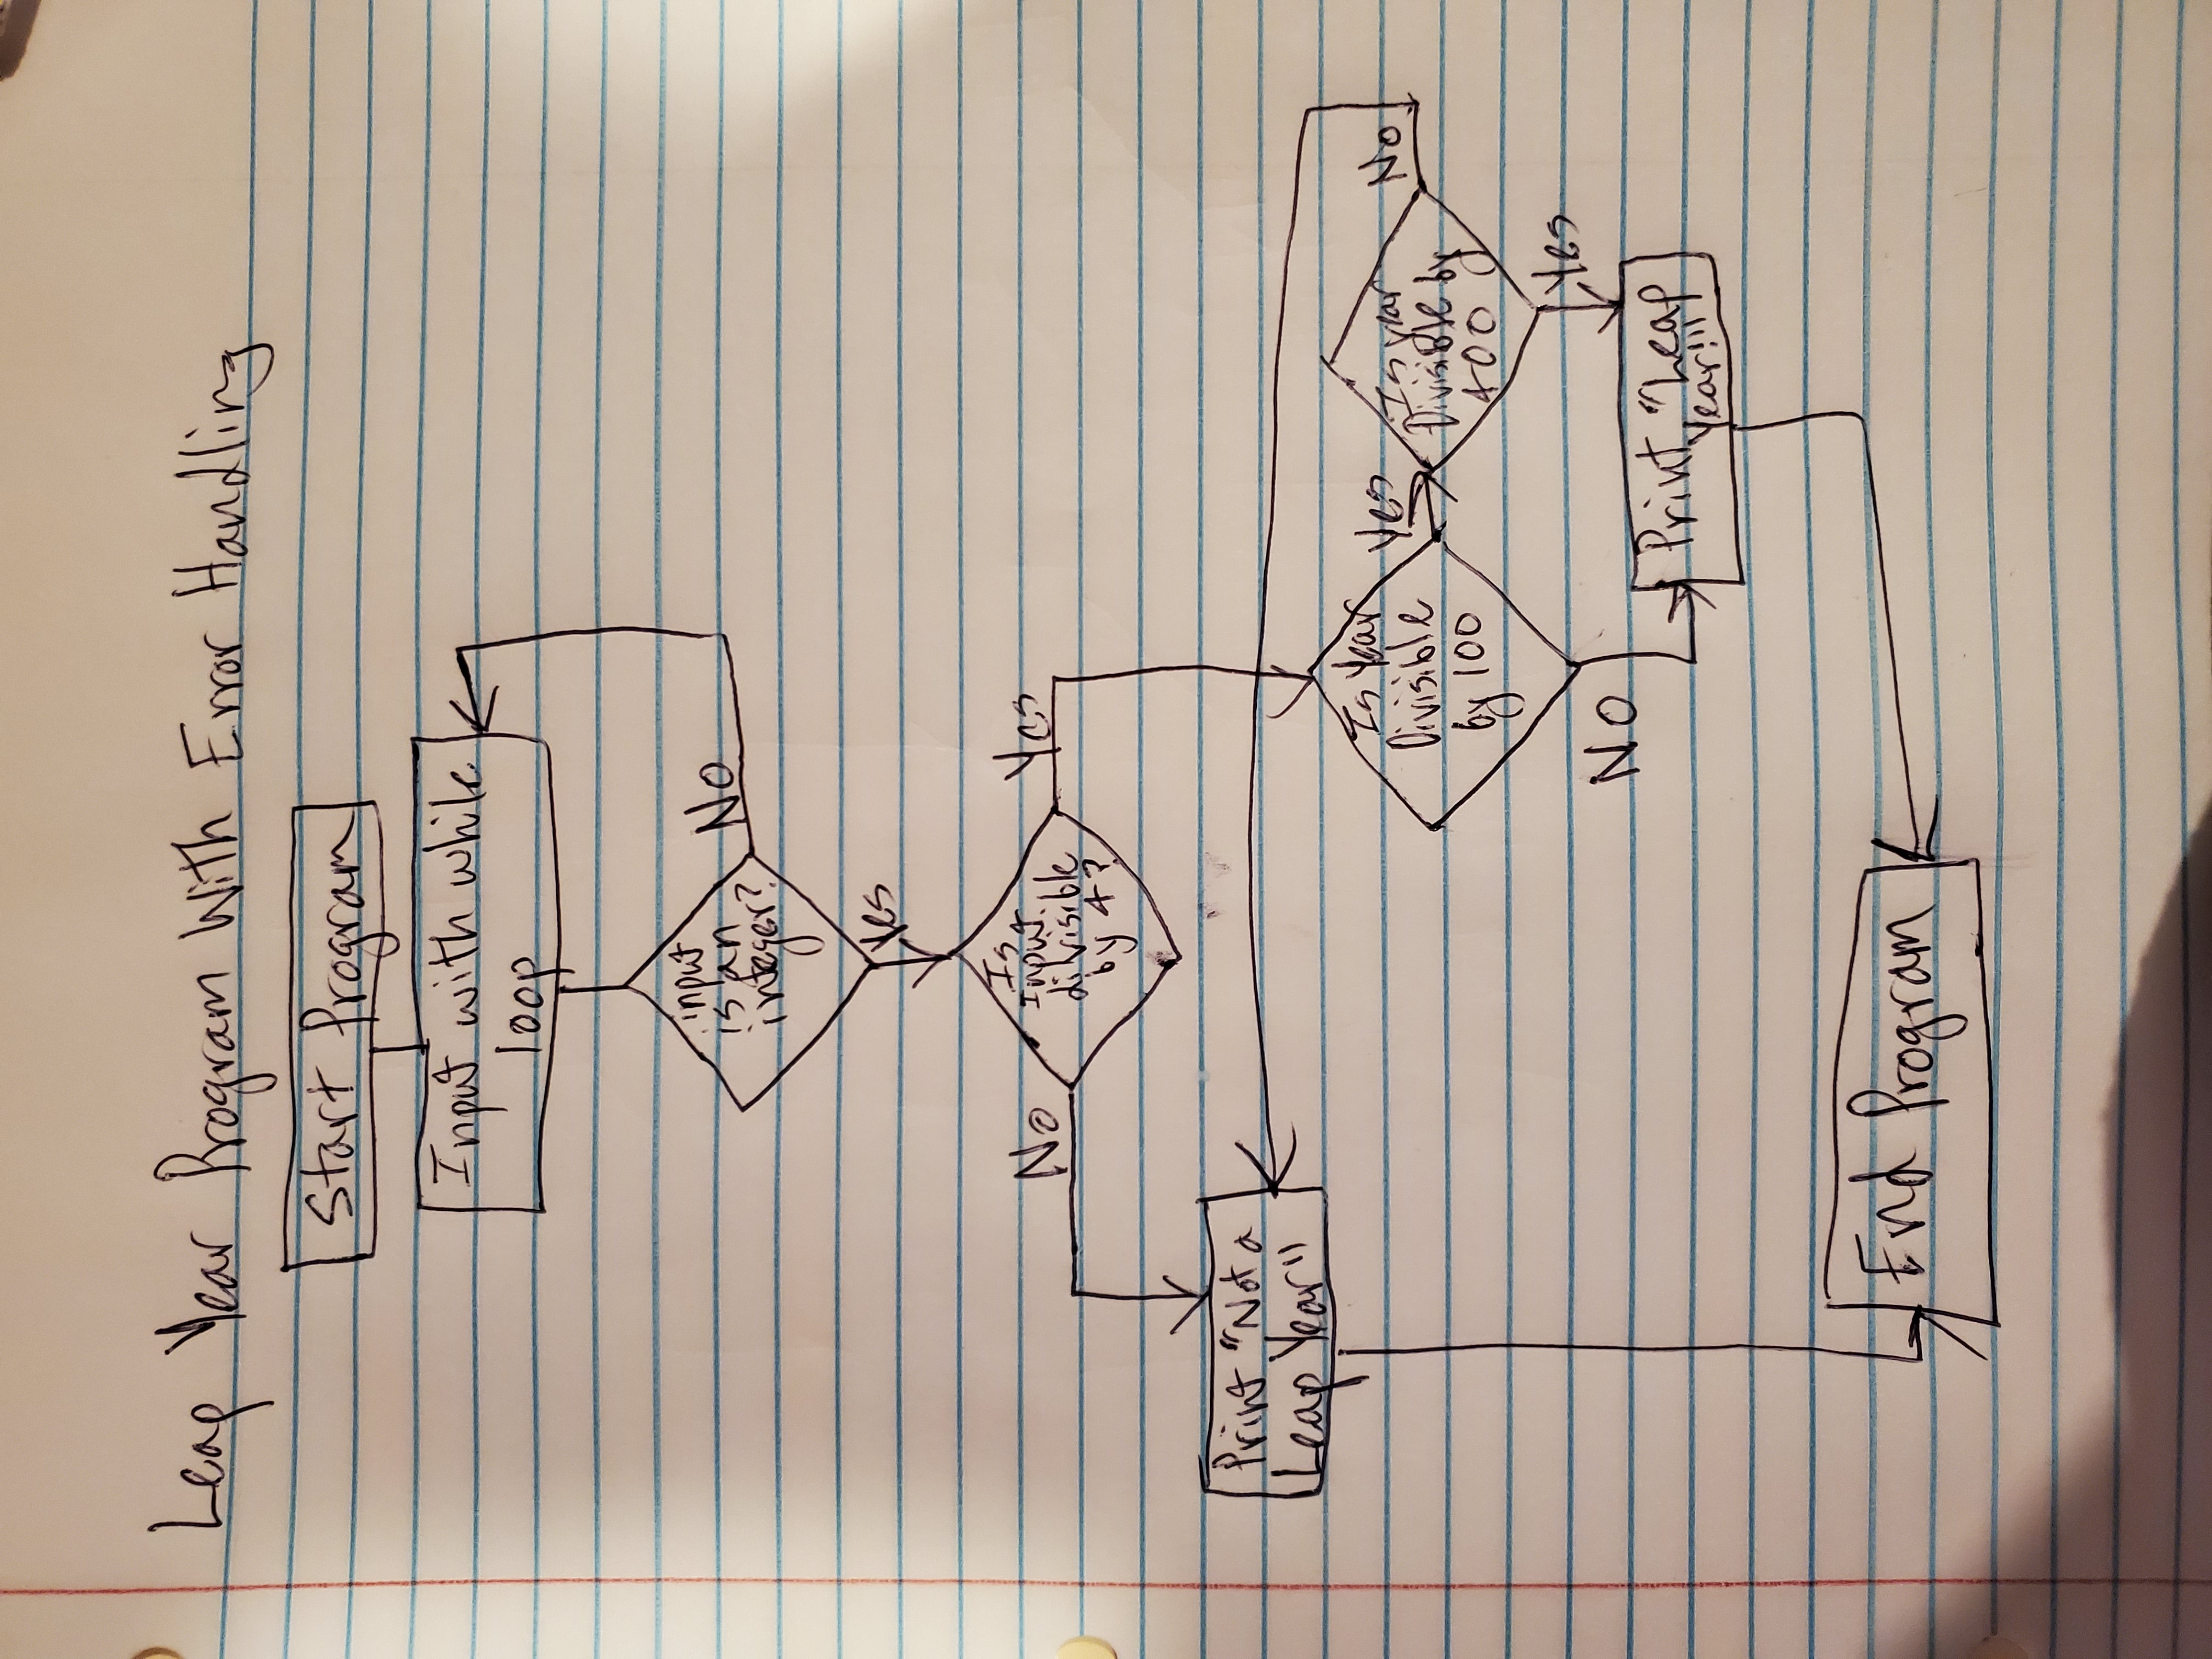 Leap Year Program With Error Handling
Start Program
Input with while
loop
input
is an
integer?
No
Yes
Is
Input
divisible
by 4?
No
Yes
Print "Not a
Leap Year"
Is Year
Divisible
by 100
Yes
Is year
Divisible by
400
No
Yes
NO
Print "Leap
Year!"
End Program